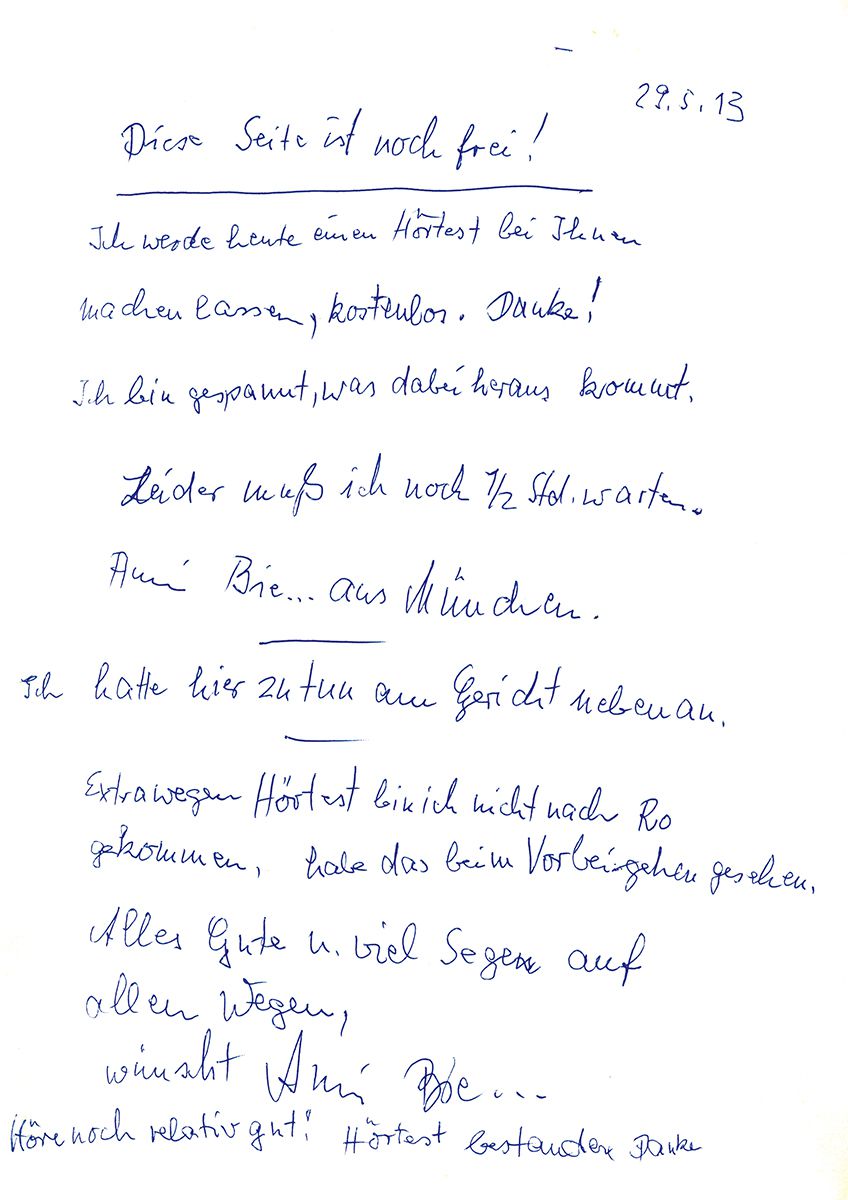 29.5.13
Diese Seite ist noch frei!
Ich werde heute einen Hörtest bei Ihnen
machen lassen, kostenlos. Danke!
Ich bin gespannt, was dabei heraus kommt.
Leider muß ich noch 1/2 Std. warten.
Anni Bie... aus München.
Ich hatte hier zu tun am Gericht nebenan.
Extra wegen Hörtest bin ich nicht nach Ro
gekommen, habe das beim Vorbei-gehen gesehen.
Alles Gute u. viel Segen auf
allen Wegen,
wünscht Anni Bie...
Höre noch relativ gut! Hörtest bestanden Danke